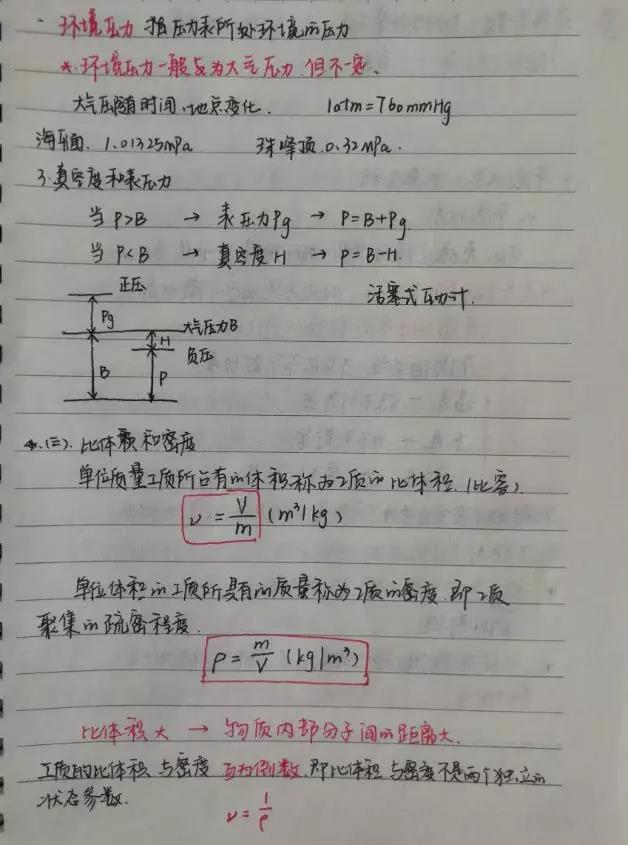 · 环境压力 指压力表所处环境的压力
*.环境压力一般多为大气压力,但不一定.
大气压随时间、地点变化. 1atm=760mmHg
海平面. 1.01325mPa 珠峰顶.0.32mPa.
3.真空度和表压力
当 P>B → 表压力Pg → P=B+Pg.
当 P<B → 真空度H → P=B-H.
正压 活塞式压力计.
Pg 大气压力B
H 负压
B P
*.(三).比体积和密度
单位质量工质所占有的体积,称为工质的比体积.(比容)
ν = V/m (m³/kg)
单位体积的工质所具有的质量称为工质的密度.即工质
聚集的疏密程度.
ρ = m/V (kg/m³)
比体积大 → 物质内部分子间的距离大.
工质的比体积与密度互为倒数.即比体积与密度不是两个独立的
状态参数.
ν = 1/ρ